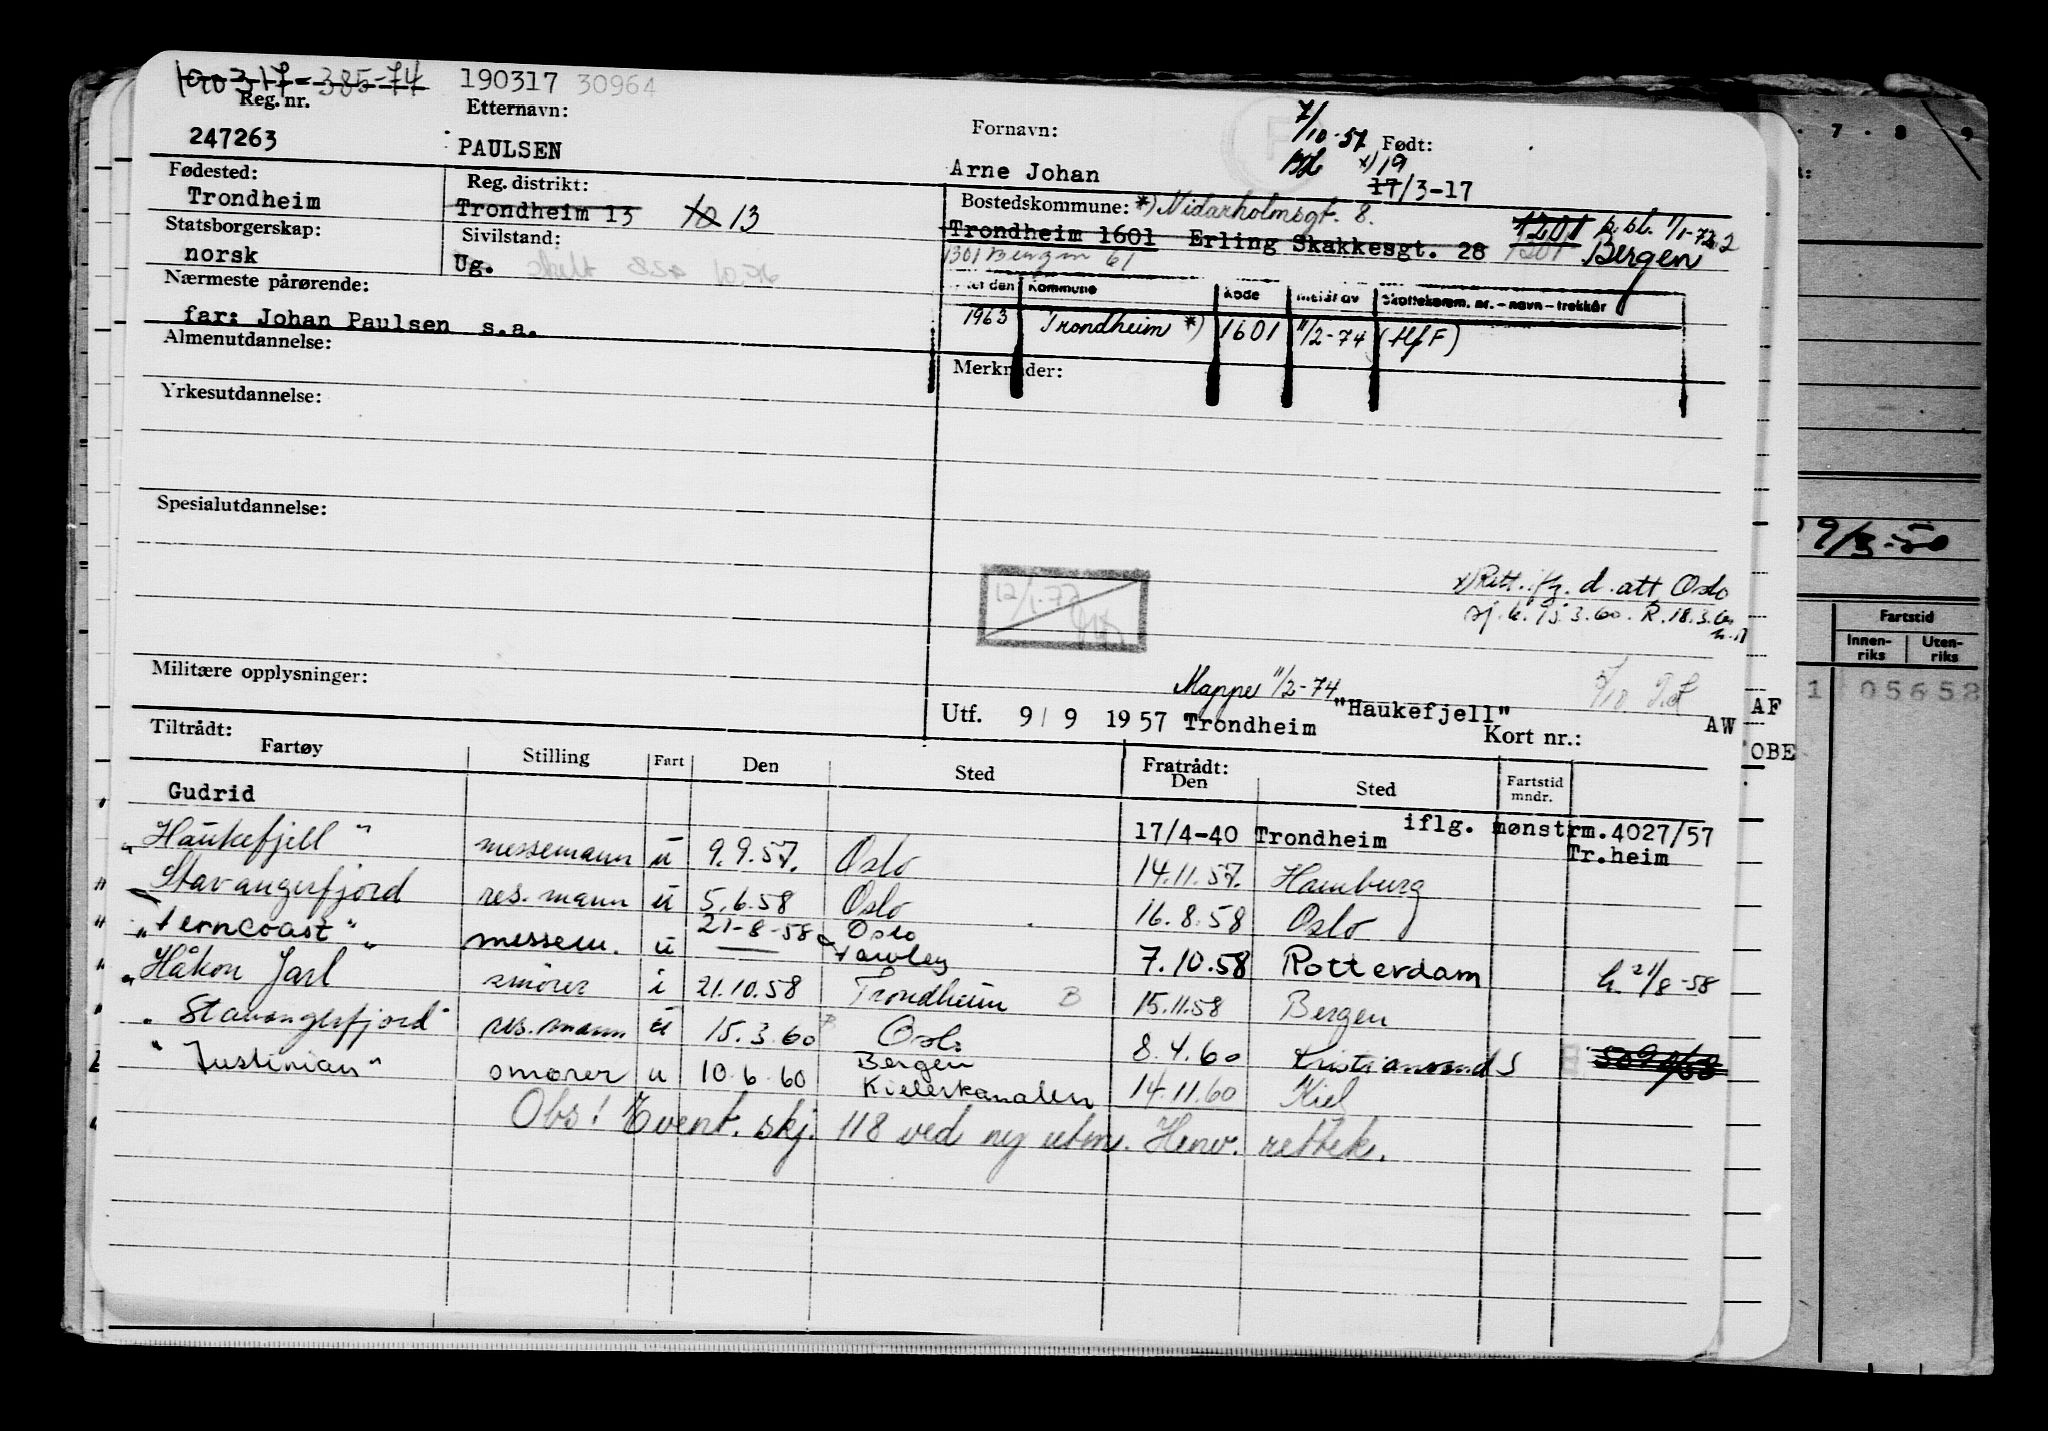 190317-385-74 190317 30964
Reg. nr. Etternavn: Fornavn: 7/10-57 Født:
247263 PAULSEN Arne Johan x) 19
17/3-17
Fødested: Reg. distrikt: Bostedskommune: *) Nidarholmsgt. 8.
Trondheim Trondheim 13 10 13 Trondheim 1601 Erling Skakkesgt. 28 1201 p. bl. 1/1-72
Statsborgerskap: Sivilstand: 1301 Bergen 61 1201 Bergen
norsk Ug. skilt
Nærmeste pårørende: Kommune Kode Skattekomm. nr. – navn – trekkår
far: Johan Paulsen s.a. 1963 Trondheim *) 1601 11/2-74 (HfF)
Almenutdannelse: Merknader:
Yrkesutdannelse:
Spesialutdannelse:
12/1-72
x) Rett. d. att Oslo
sj. k. 15.3.60. R. 18.3.60
Militære opplysninger: Mappe 11/2-74 "Haukefjell"
Utf. 9/ 9 1957 Trondheim Kort nr.: AW
Tiltrådt: Fratrådt:
Fartøy Stilling Fart Den Sted Den Sted Fartstid mndr.
Gudrid 17/4-40 Trondheim iflg. mønstrm. 4027/57
Tr.heim
"Haukefjell" messemann u 9.9.57. Oslo 14.11.57. Hamburg
"Stavangerfjord res. mann u 5.6.58 Oslo 16.8.58 Oslo
"Ferncoast" messem. u 21-8-58 Oslo 7.10.58 Rotterdam h. 21/8-58
"Håkon Jarl" smører i 21.10.58 Trondheim B 15.11.58 Bergen
"Stavangerfjord" res. mann u 15.3.60 Oslo 8.4.60 Kristiansand S
"Justinian" smører u 10.6.60 Bergen
Kielerkanalen 14.11.60 Kiel
Obs! Event. skj. 118 ved ny utm. Henv. rettek.
7 8 9
9/3-50
Fartstid
Innen-riks Uten-riks
1 05652
AF
OBE